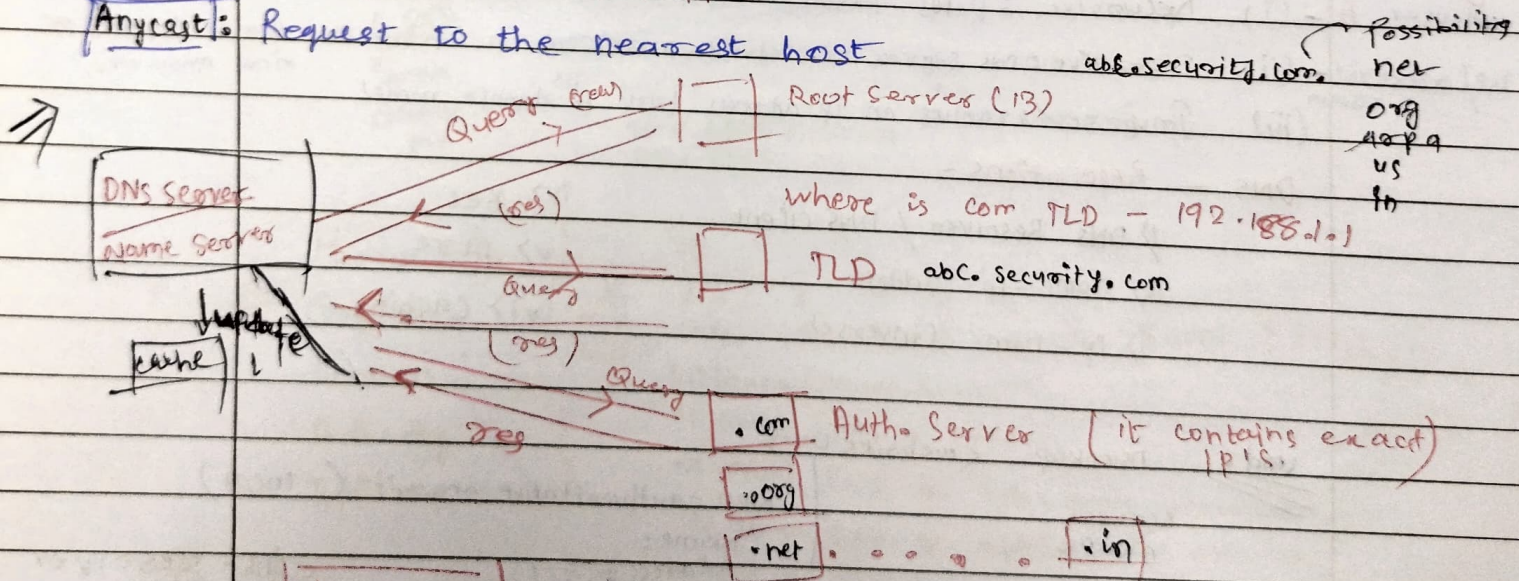 Anycast : Request to the nearest host
Possibilities
abc.security.com.
net
org
arpa
us
in
Query (req)
Root Server (13)
DNS Server
Name Server
(res)
where is com TLD - 192.188.1.1
TLD abc. security. com
Query
update
(res)
cache
Query
res
.com Auth. Server (it contains exact)
IP's
.org
.net . . . . . .in